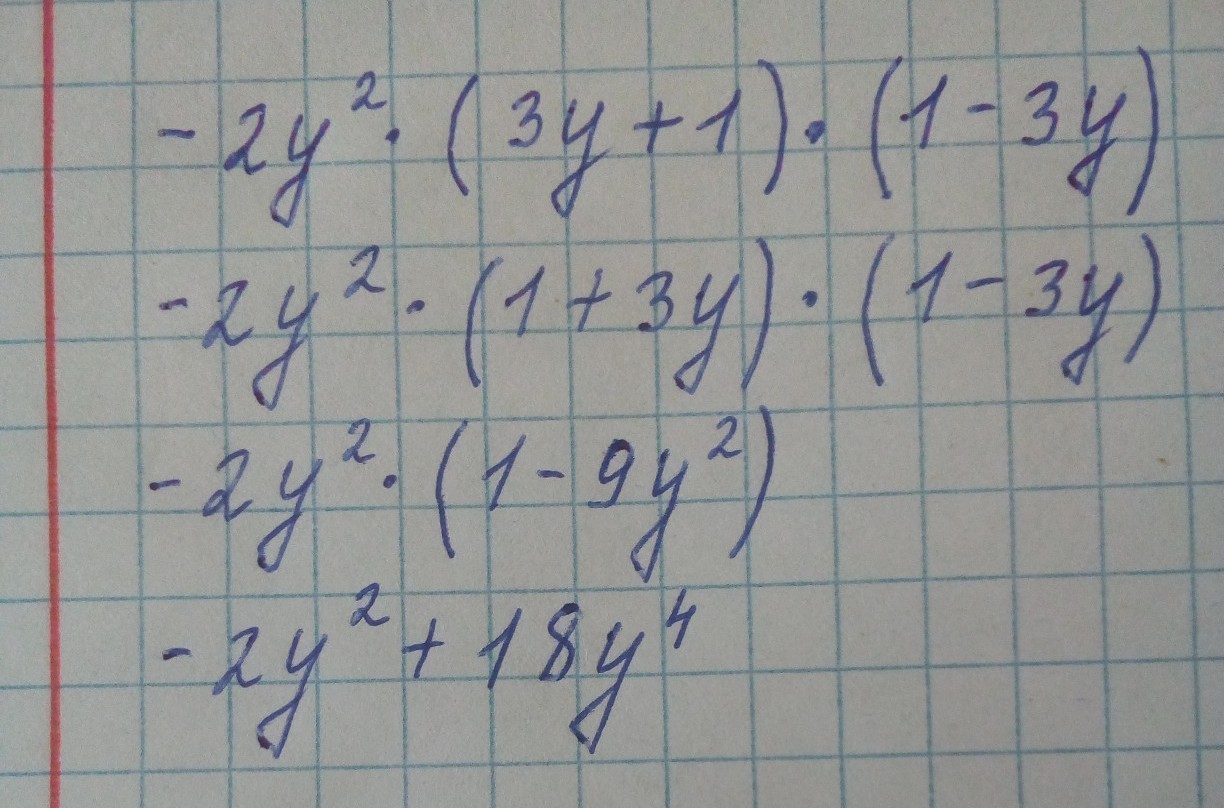 -2y²·(3y+1)·(1-3y)
-2y²·(1+3y)·(1-3y)
-2y²·(1-9y²)
-2y²+18y⁴